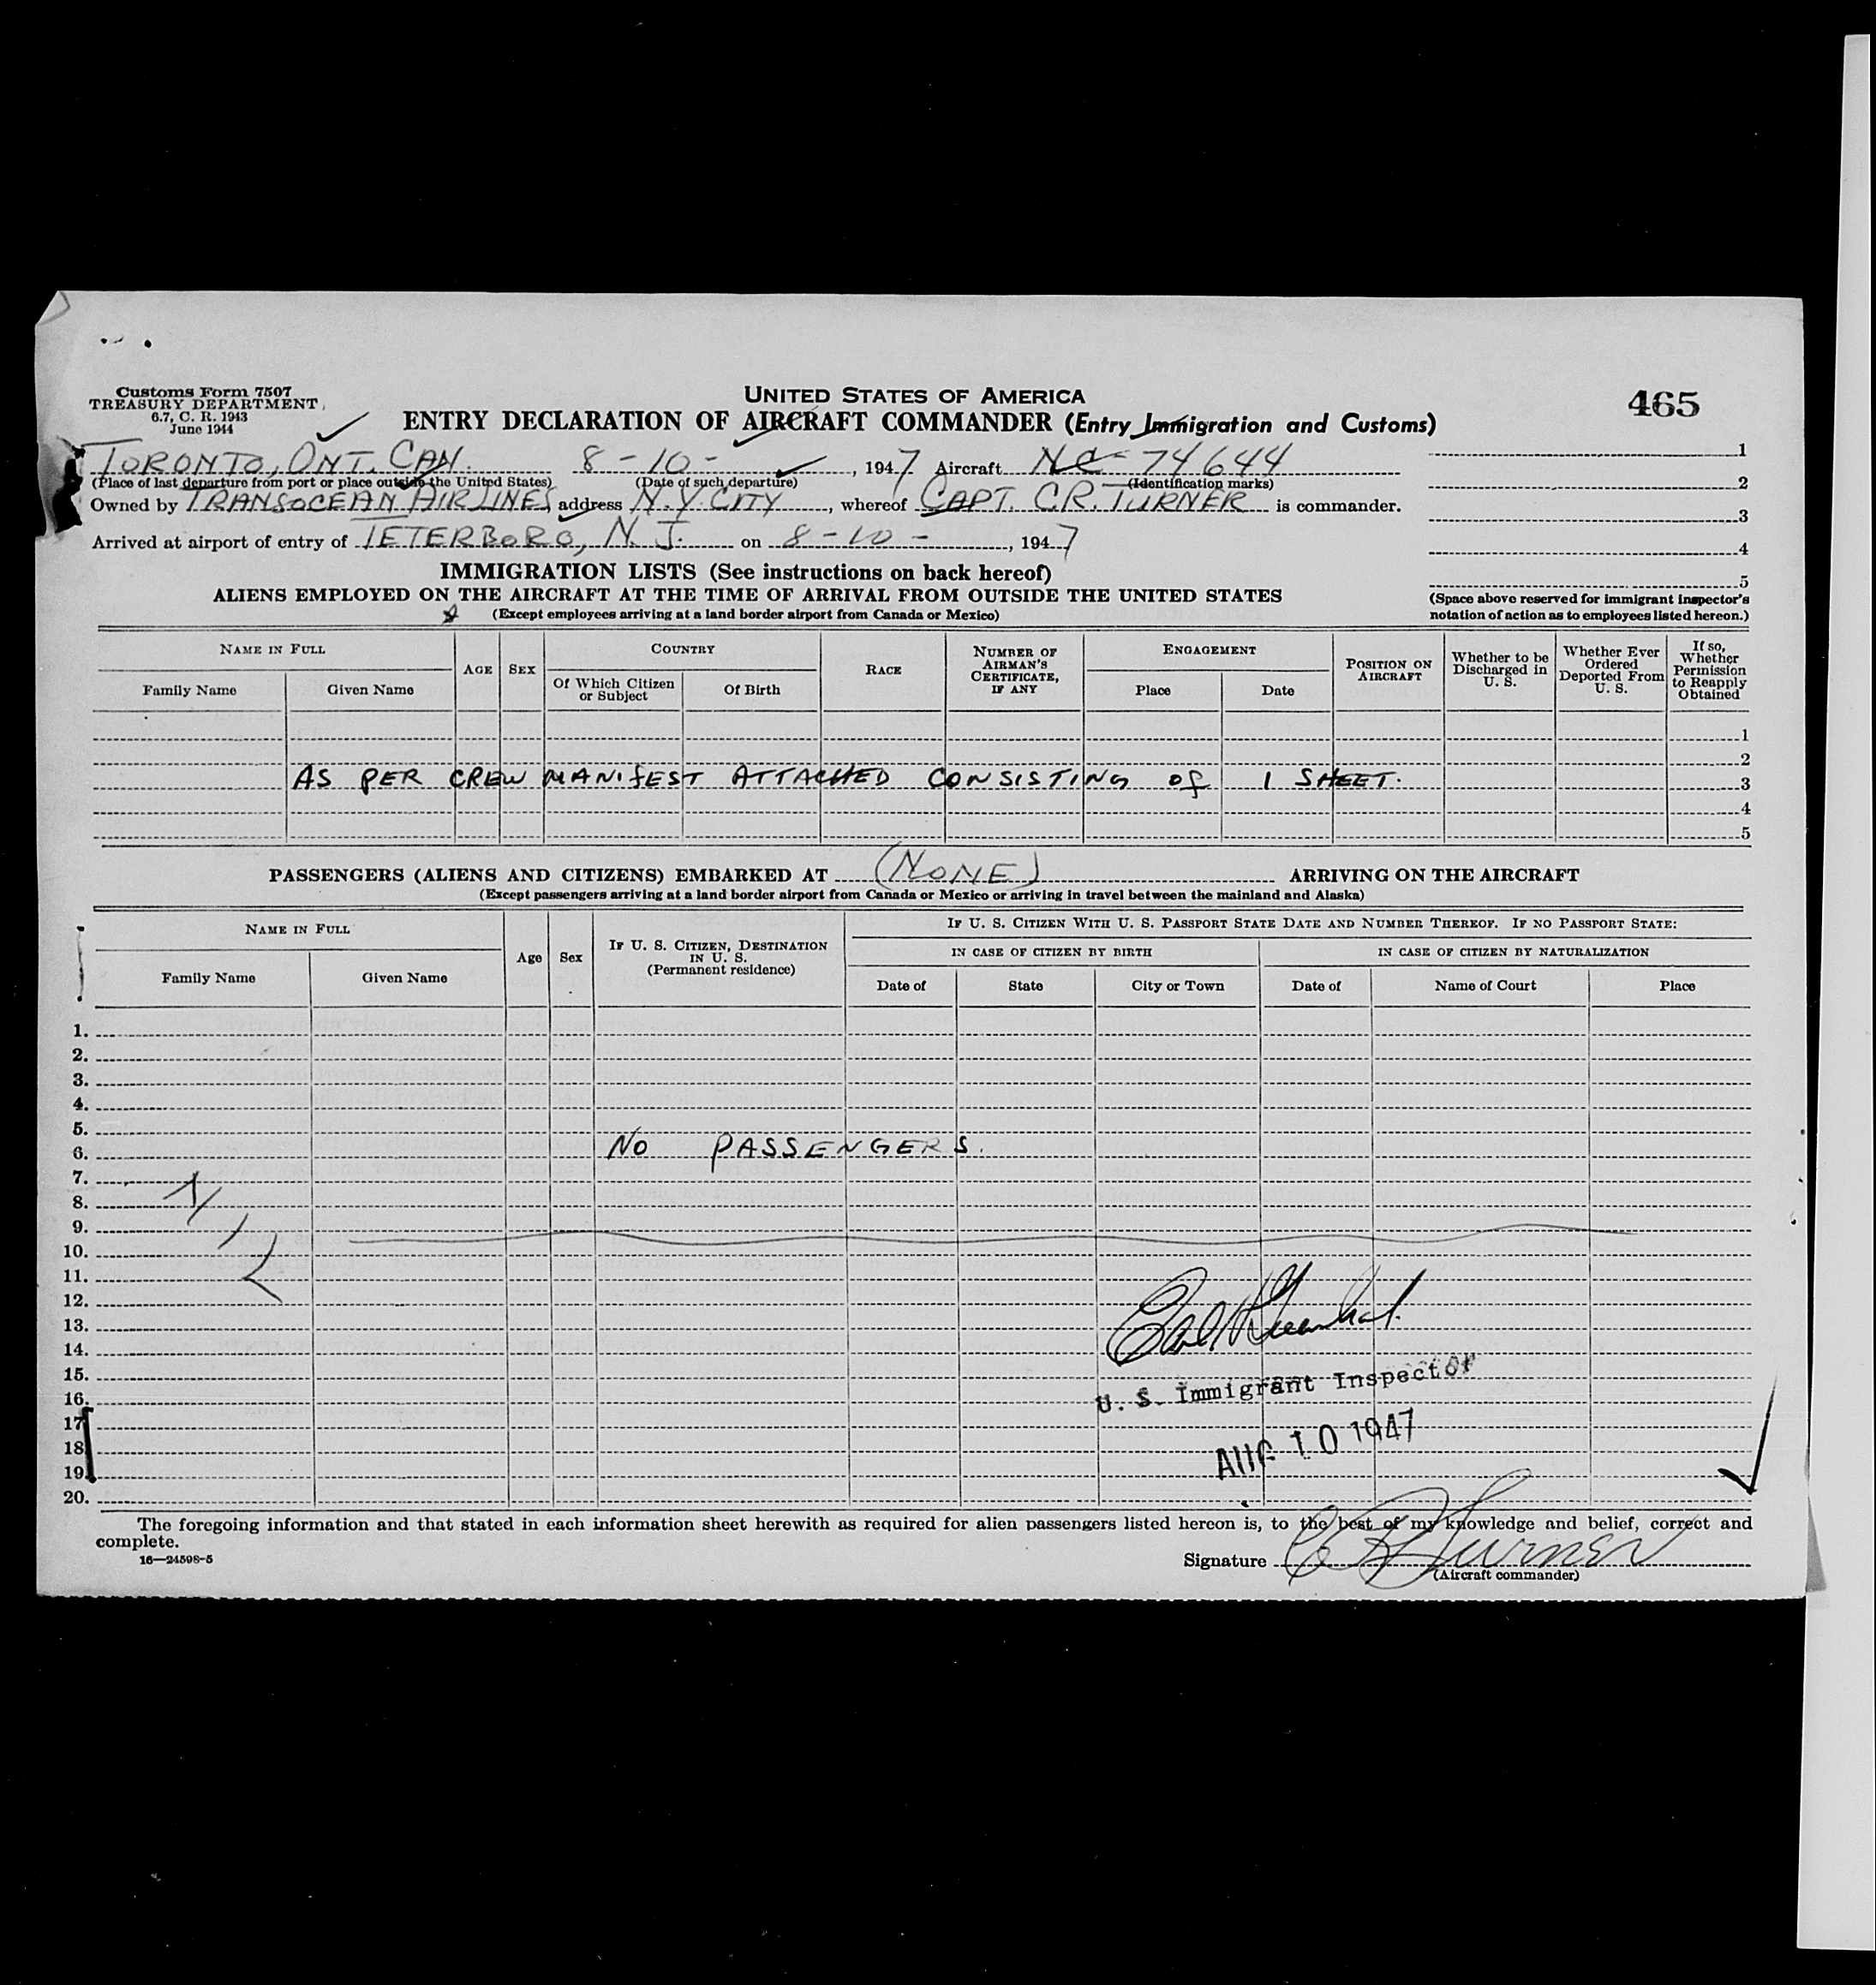 Customs Form 7507
TREASURY DEPARTMENT
6.7, C. R. 1943
June 1944
UNITED STATES OF AMERICA
465
ENTRY DECLARATION OF AIRCRAFT COMMANDER (Entry Immigration and Customs)
TORONTO, ONT. CAN. 8-10-, 1947 Aircraft NC-74644
(Place of last departure from port or place outside the United States) (Date of such departure) (Identification marks)
Owned by TRANSOCEAN AIR LINES, address N.Y. CITY, whereof CAPT. C.R. TURNER is commander.
Arrived at airport of entry of TETERBORO, N. J. on 8-10-, 1947
1
2
3
4
5
(Space above reserved for immigrant inspector's
notation of action as to employees listed hereon.)
IMMIGRATION LISTS (See instructions on back hereof)
ALIENS EMPLOYED ON THE AIRCRAFT AT THE TIME OF ARRIVAL FROM OUTSIDE THE UNITED STATES
(Except employees arriving at a land border airport from Canada or Mexico)
NAME IN FULL
Family Name
Given Name
AGE
SEX
COUNTRY
Of Which Citizen
or Subject
Of Birth
RACE
NUMBER OF
AIRMAN'S
CERTIFICATE,
IF ANY
ENGAGEMENT
Place
Date
POSITION ON
AIRCRAFT
Whether to be
Discharged in
U. S.
Whether Ever
Ordered
Deported From
U. S.
If so,
Whether
Permission
to Reapply
Obtained
1
2
AS PER CREW MANIFEST ATTACHED CONSISTING OF 1 SHEET. 3
4
5
PASSENGERS (ALIENS AND CITIZENS) EMBARKED AT (NONE) ARRIVING ON THE AIRCRAFT
(Except passengers arriving at a land border airport from Canada or Mexico or arriving in travel between the mainland and Alaska)
NAME IN FULL
Family Name
Given Name
Age
Sex
IF U. S. CITIZEN, DESTINATION
IN U. S.
(Permanent residence)
IF U. S. CITIZEN WITH U. S. PASSPORT STATE DATE AND NUMBER THEREOF. IF NO PASSPORT STATE:
IN CASE OF CITIZEN BY BIRTH
IN CASE OF CITIZEN BY NATURALIZATION
Date of
State
City or Town
Date of
Name of Court
Place
1.
2.
3.
4.
5.
6. NO PASSENGERS.
7.
8.
9.
10.
11.
12.
13.
14.
15.
16.
17.
18.
19.
20.
U. S. Immigrant Inspector
AUG 10 1947
The foregoing information and that stated in each information sheet herewith as required for alien passengers listed hereon is, to the best of my knowledge and belief, correct and
complete.
16—24598-5
Signature C R Turner
(Aircraft commander)